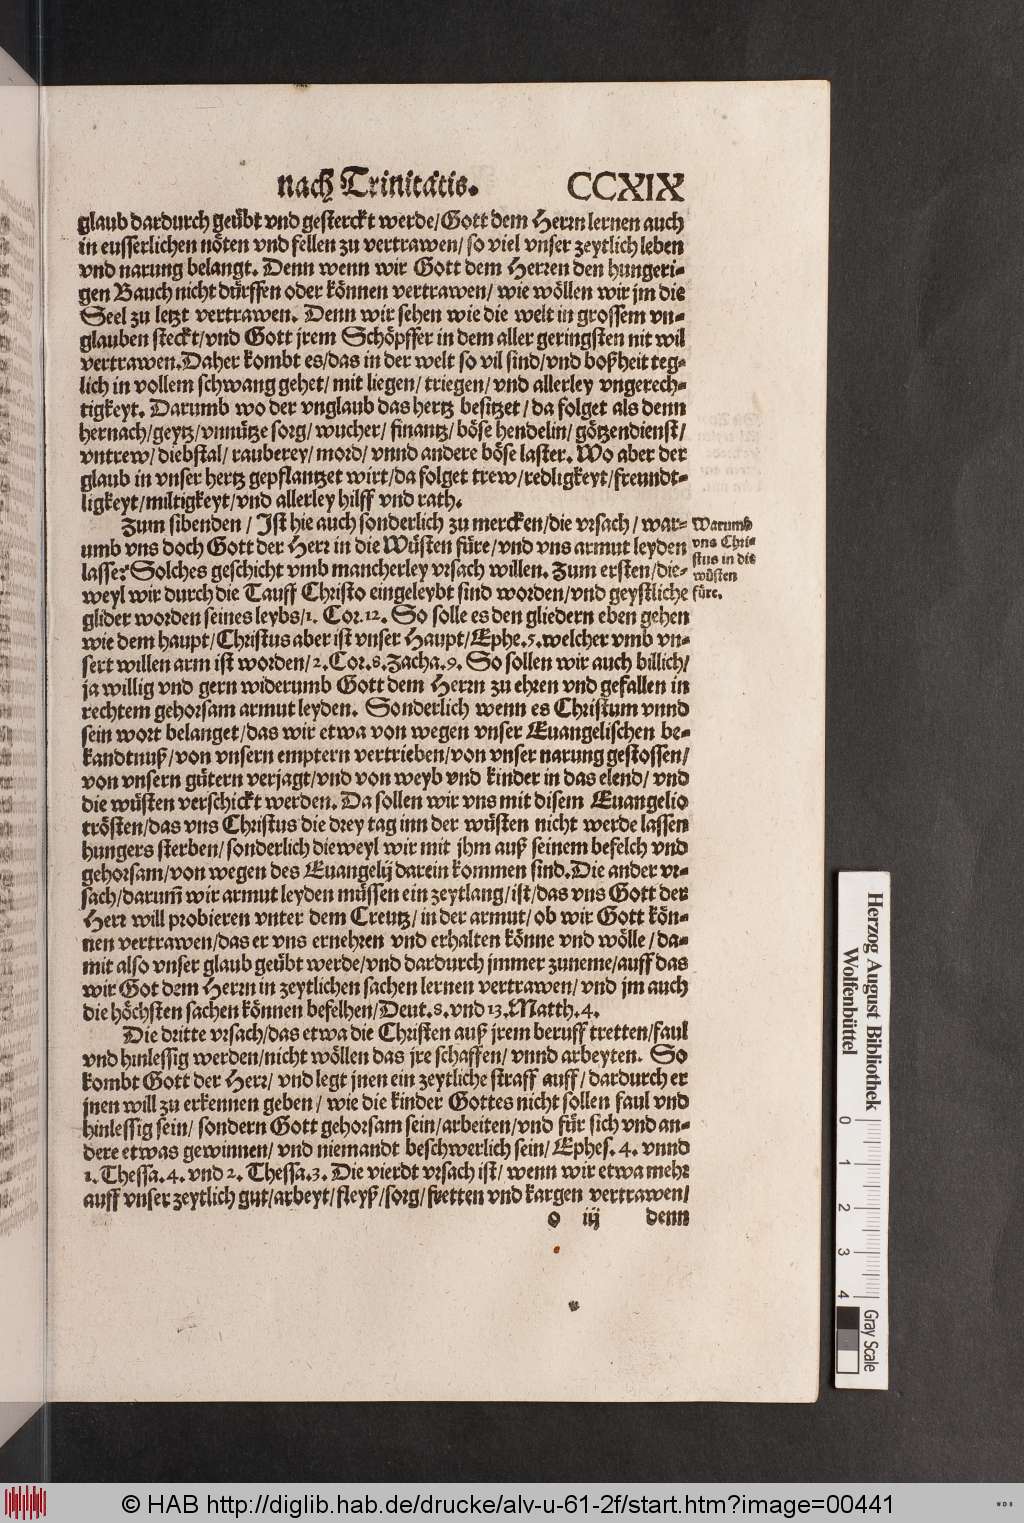 nach Trinitatis. CCXIX
glaub dardurch geübt vnd gesterckt werde/Gott dem Herrn lernen auch
in eusserlichen nöten vnd fellen zu vertrawen/ so viel vnser zeytlich leben
vnd narung belangt. Denn wenn wir Gott dem Herren den hungeri-
gen Bauch nicht dürffen oder können vertrawen/ wie wöllen wir jm die
Seel zu letzt vertrawen. Denn wir sehen wie die welt in grossem vn-
glauben steckt/vnd Gott jrem Schöpffer in dem aller geringsten nit wil
vertrawen.Daher kombt es/das in der welt so vil sünd/vnd boßheit teg-
lich in vollem schwang gehet/ mit liegen/ triegen/ vnd allerley vngerech-
tigkeyt. Darumb wo der vnglaub das hertz besitzet/ da folget als denn
hernach/geytz/vnnütze sorg/ wucher/ finantz/ böse hendelin/ götzendienst/
vntrew/ diebstal/ rauberey/ mord/ vnnd andere böse laster. Wo aber der
glaub in vnser hertz gepflantzet wirt/da folget trew/redligkeyt/freundt-
ligkeyt/miltigkeyt/vnd allerley hilff vnd rath.
Zum sibenden/ Ist hie auch sonderlich zu mercken/die vrsach/ war-
umb vns doch Gott der Herr in die Wüsten füre/vnd vns armut leyden
lasse? Solches geschicht vmb mancherley vrsach willen. Zum ersten/die-
weyl wir durch die Tauff Christo eingeleybt sind worden/vnd geystliche
Warumb
vns Chri-
stus in die
wüsten
füre.
glider worden seines leybs/1. Cor.12. So solle es den gliedern eben gehen
wie dem haupt/Christus aber ist vnser Haupt/Ephe.5.welcher vmb vn-
sert willen arm ist worden/2.Cor.8.Zacha.9. So sollen wir auch billich/
ja willig vnd gern widerumb Gott dem Herrn zu ehren vnd gefallen in
rechtem gehorsam armut leyden. Sonderlich wenn es Christum vnnd
sein wort belanget/das wir etwa von wegen vnser Euangelischen be-
kandtnuß/von vnsern emptern vertrieben/von vnser narung gestossen/
von vnsern gütern verjagt/vnd von weyb vnd kinder in das elend/ vnd
die wüsten verschickt werden. Da sollen wir vns mit disem Euangelio
trösten/das vns Christus die drey tag inn der wüsten nicht werde lassen
hungers sterben/sonderlich dieweyl wir mit jhm auß seinem befelch vnd
gehorsam/von wegen des Euangelij darein kommen sind.Die ander vr-
sach/darum̄ wir armut leyden müssen ein zeytlang/ist/das vns Gott der
Herr will probieren vnter dem Creutz/in der armut/ob wir Gott kön-
nen vertrawen/das er vns ernehren vnd erhalten könne vnd wölle/da-
mit also vnser glaub geübt werde/vnd dardurch jmmer zuneme/auff das
wir Got dem Herrn in zeytlichen sachen lernen vertrawen/vnd jm auch
die höchsten sachen können befelhen/Deut.8.vnd 13.Matth.4.
Die dritte vrsach/das etwa die Christen auß jrem beruff tretten/faul
vnd hinlessig werden/nicht wöllen das jre schaffen/ vnnd arbeyten. So
kombt Gott der Herr/ vnd legt jnen ein zeytliche straff auff/ dardurch er
jnen will zu erkennen geben/ wie die kinder Gottes nicht sollen faul vnd
hinlessig sein/ sondern Gott gehorsam sein/arbeiten/vnd für sich vnd an-
dere etwas gewinnen/ vnd niemandt beschwerlich sein/ Ephes. 4. vnnd
1. Thessa.4. vnd 2. Thessa.3. Die vierdt vrsach ist/ wenn wir etwa mehr
auff vnser zeytlich gut/arbeyt/fleyß/sorg/fretten vnd kargen vertrawen/
o iij denn
Herzog August Bibliothek
Wolfenbüttel
0 1 2 3 4
Gray Scale
© HAB http://diglib.hab.de/drucke/alv-u-61-2f/start.htm?image=00441